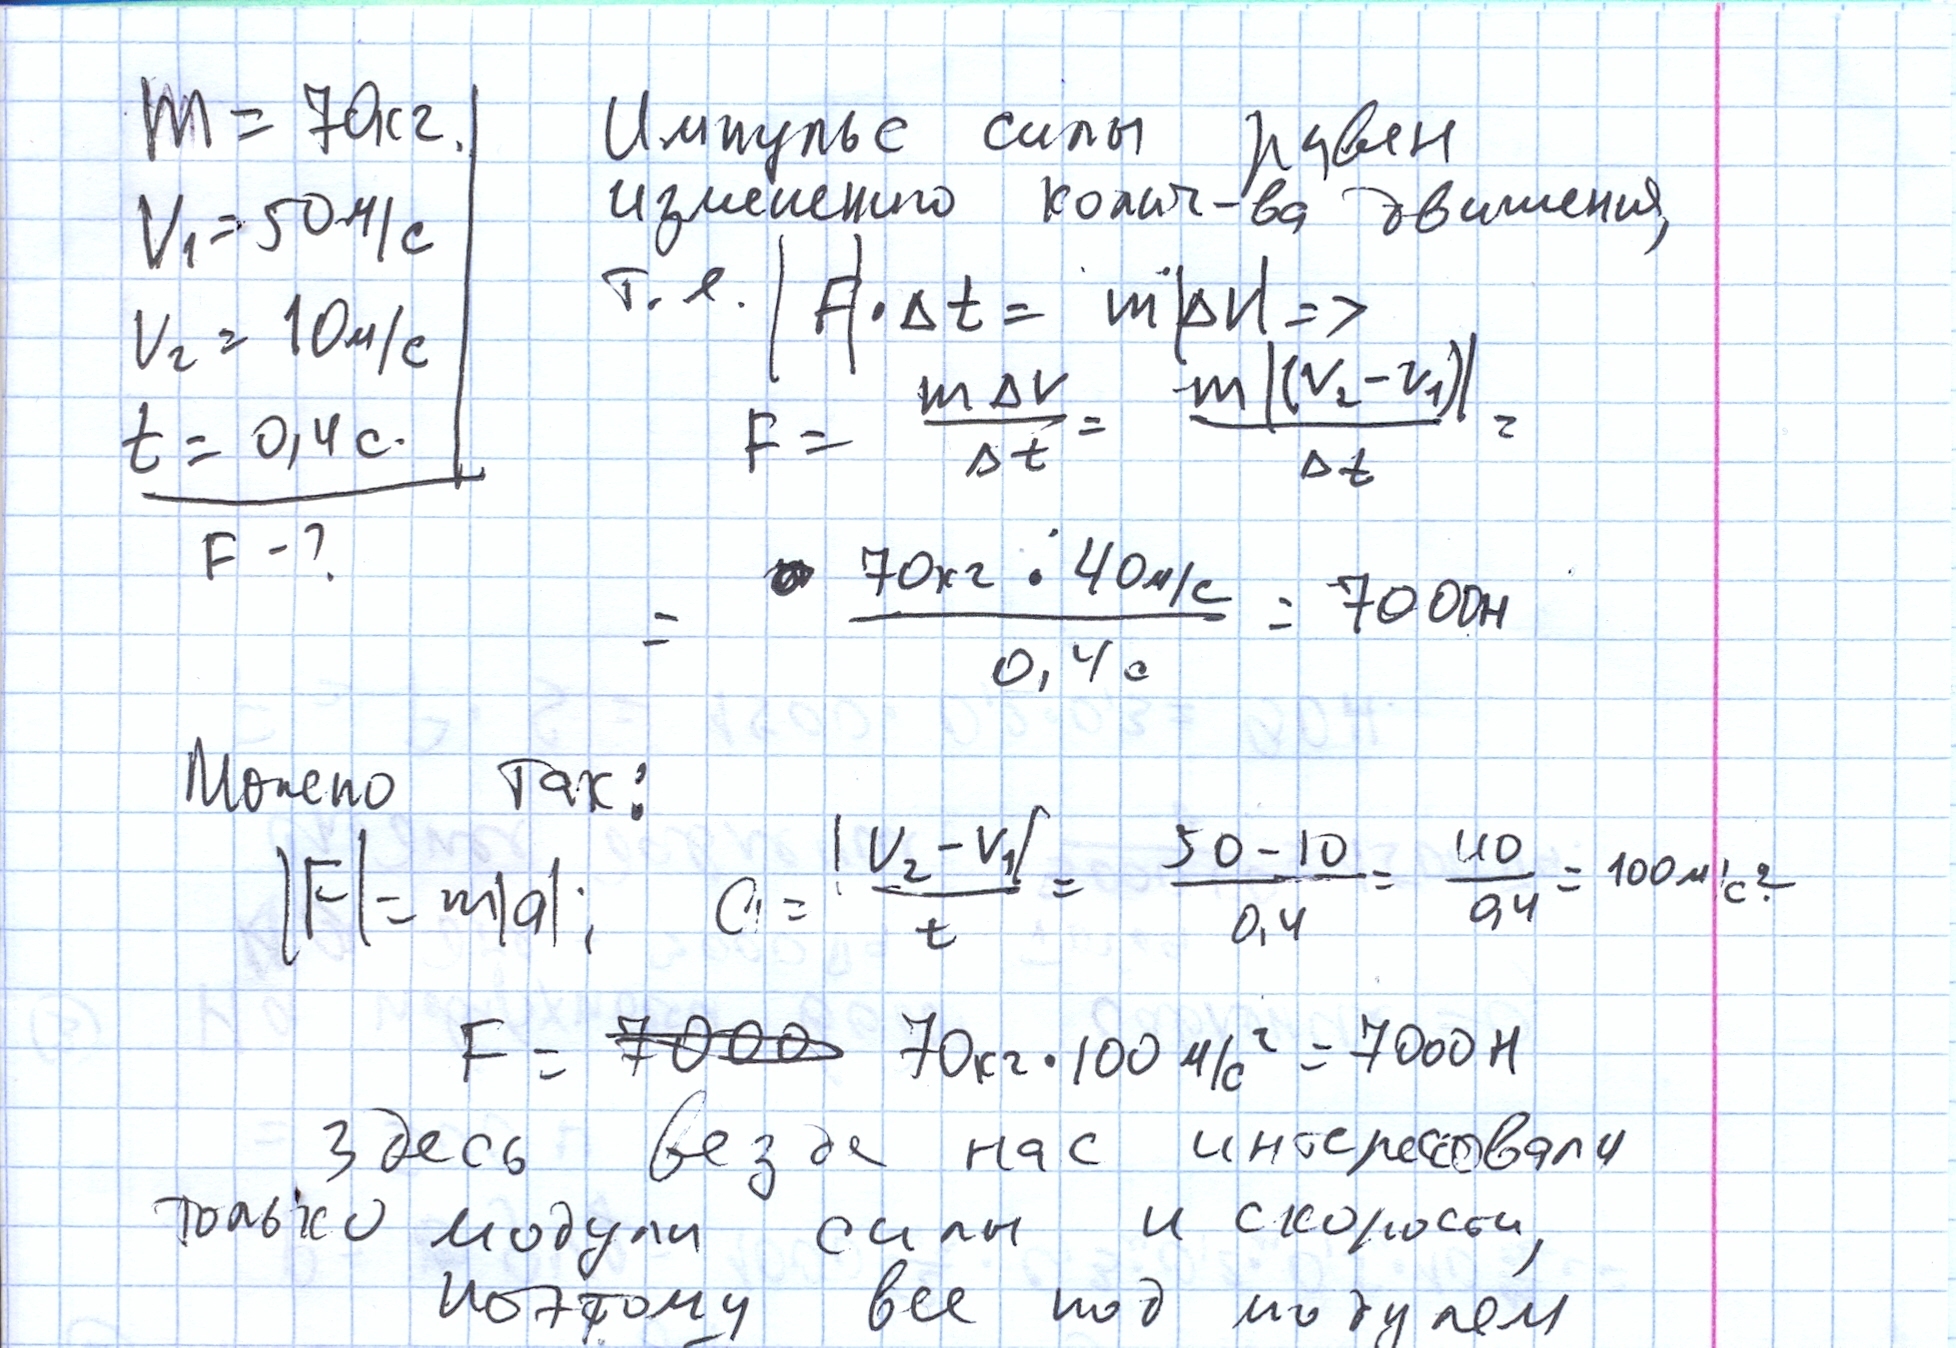 m = 70кг.
V₁ = 50м/с
V₂ = 10м/с
t = 0,4с.
F - ?
Импульс силы равен
изменению колич-ва движения,
т.е. |F|·Δt = m|ΔV| =>
F = mΔV/Δt = m|(V₂-V₁)|/Δt =
= 70кг · 40м/с / 0,4с = 7000н
Можно так:
|F| = m|a|; a = |V₂-V₁|/t = 50-10/0,4 = 40/0,4 = 100м/с²
F = 7000 70кг·100 м/с² = 7000 Н
Здесь везде нас интересовали
только модули силы и скорости,
поэтому все под модулем